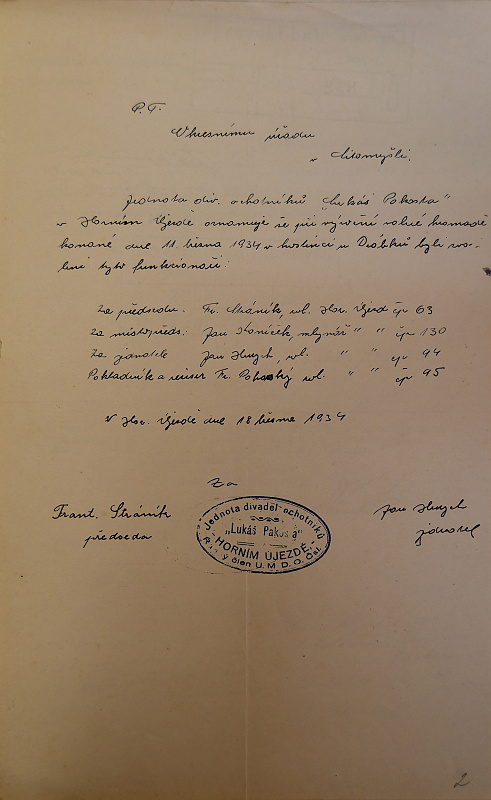 P. T.
Okresnímu úřadu
v Litomyšli.
Jednota div. ochotníků "Lukáš Pakosta"
v Horním Újezdě oznamuje že při výroční valné hromadě
konané dne 11. března 1934 v hostinci u Drobků byli zvo-
leni tyto funkcionáři:
Za předsedu: Fr. Stráník, rol. Hor. Újezd čp 63
Za místopřed: Jan , mlynář " " čp 130
Za jednatele Jan , rol. " " čp 94
Pokladník a režiser Fr. rol. " " čp 95
V Hor. Újezdě dne 18 března 1934
Za
Frant. Stráník
předseda
Jan
jednatel
Jednota divadel. ochotníků
„Lukáš Pakosta"
HORNÍM ÚJEZDĚ.
člen U. M. D. O. Čsl.
2